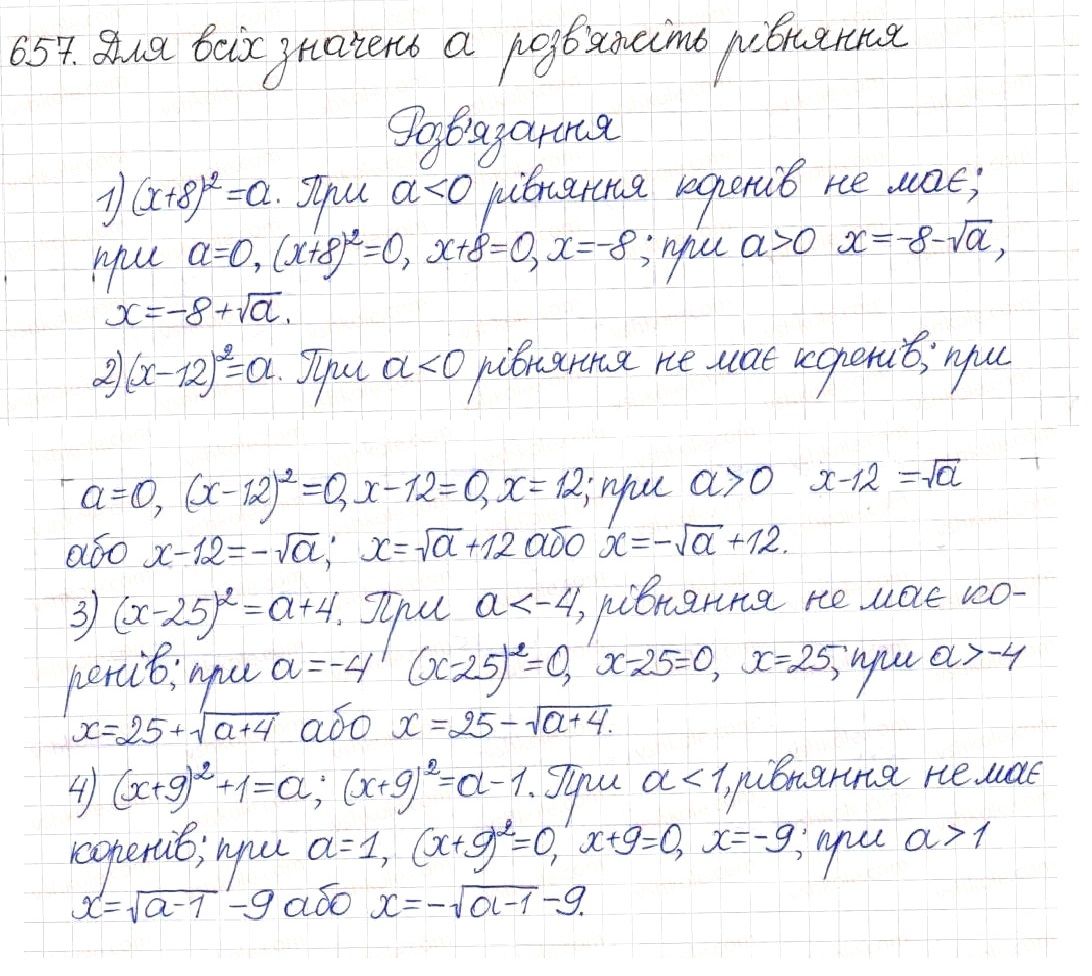 657. Для всіх значень а розв'яжіть рівняння
Розв'язання
1) (x+8)²=a. При a<0 рівняння коренів не має;
при a=0, (x+8)²=0, x+8=0, x=-8; при a>0 x=-8-√a,
x=-8+√a.
2) (x-12)²=a. При a<0 рівняння не має коренів; при
a=0, (x-12)²=0, x-12=0, x=12; при a>0 x-12=√a
або x-12=-√a; x=√a+12 або x=-√a+12.
3) (x-25)²=a+4. При a<-4, рівняння не має ко-
ренів; при a=-4 (x-25)²=0, x-25=0, x=25; при a>-4
x=25+√(a+4) або x=25-√(a+4).
4) (x+9)²+1=a; (x+9)²=a-1. При a<1, рівняння не має
коренів; при a=1, (x+9)²=0, x+9=0, x=-9; при a>1
x=√(a-1)-9 або x=-√(a-1)-9.